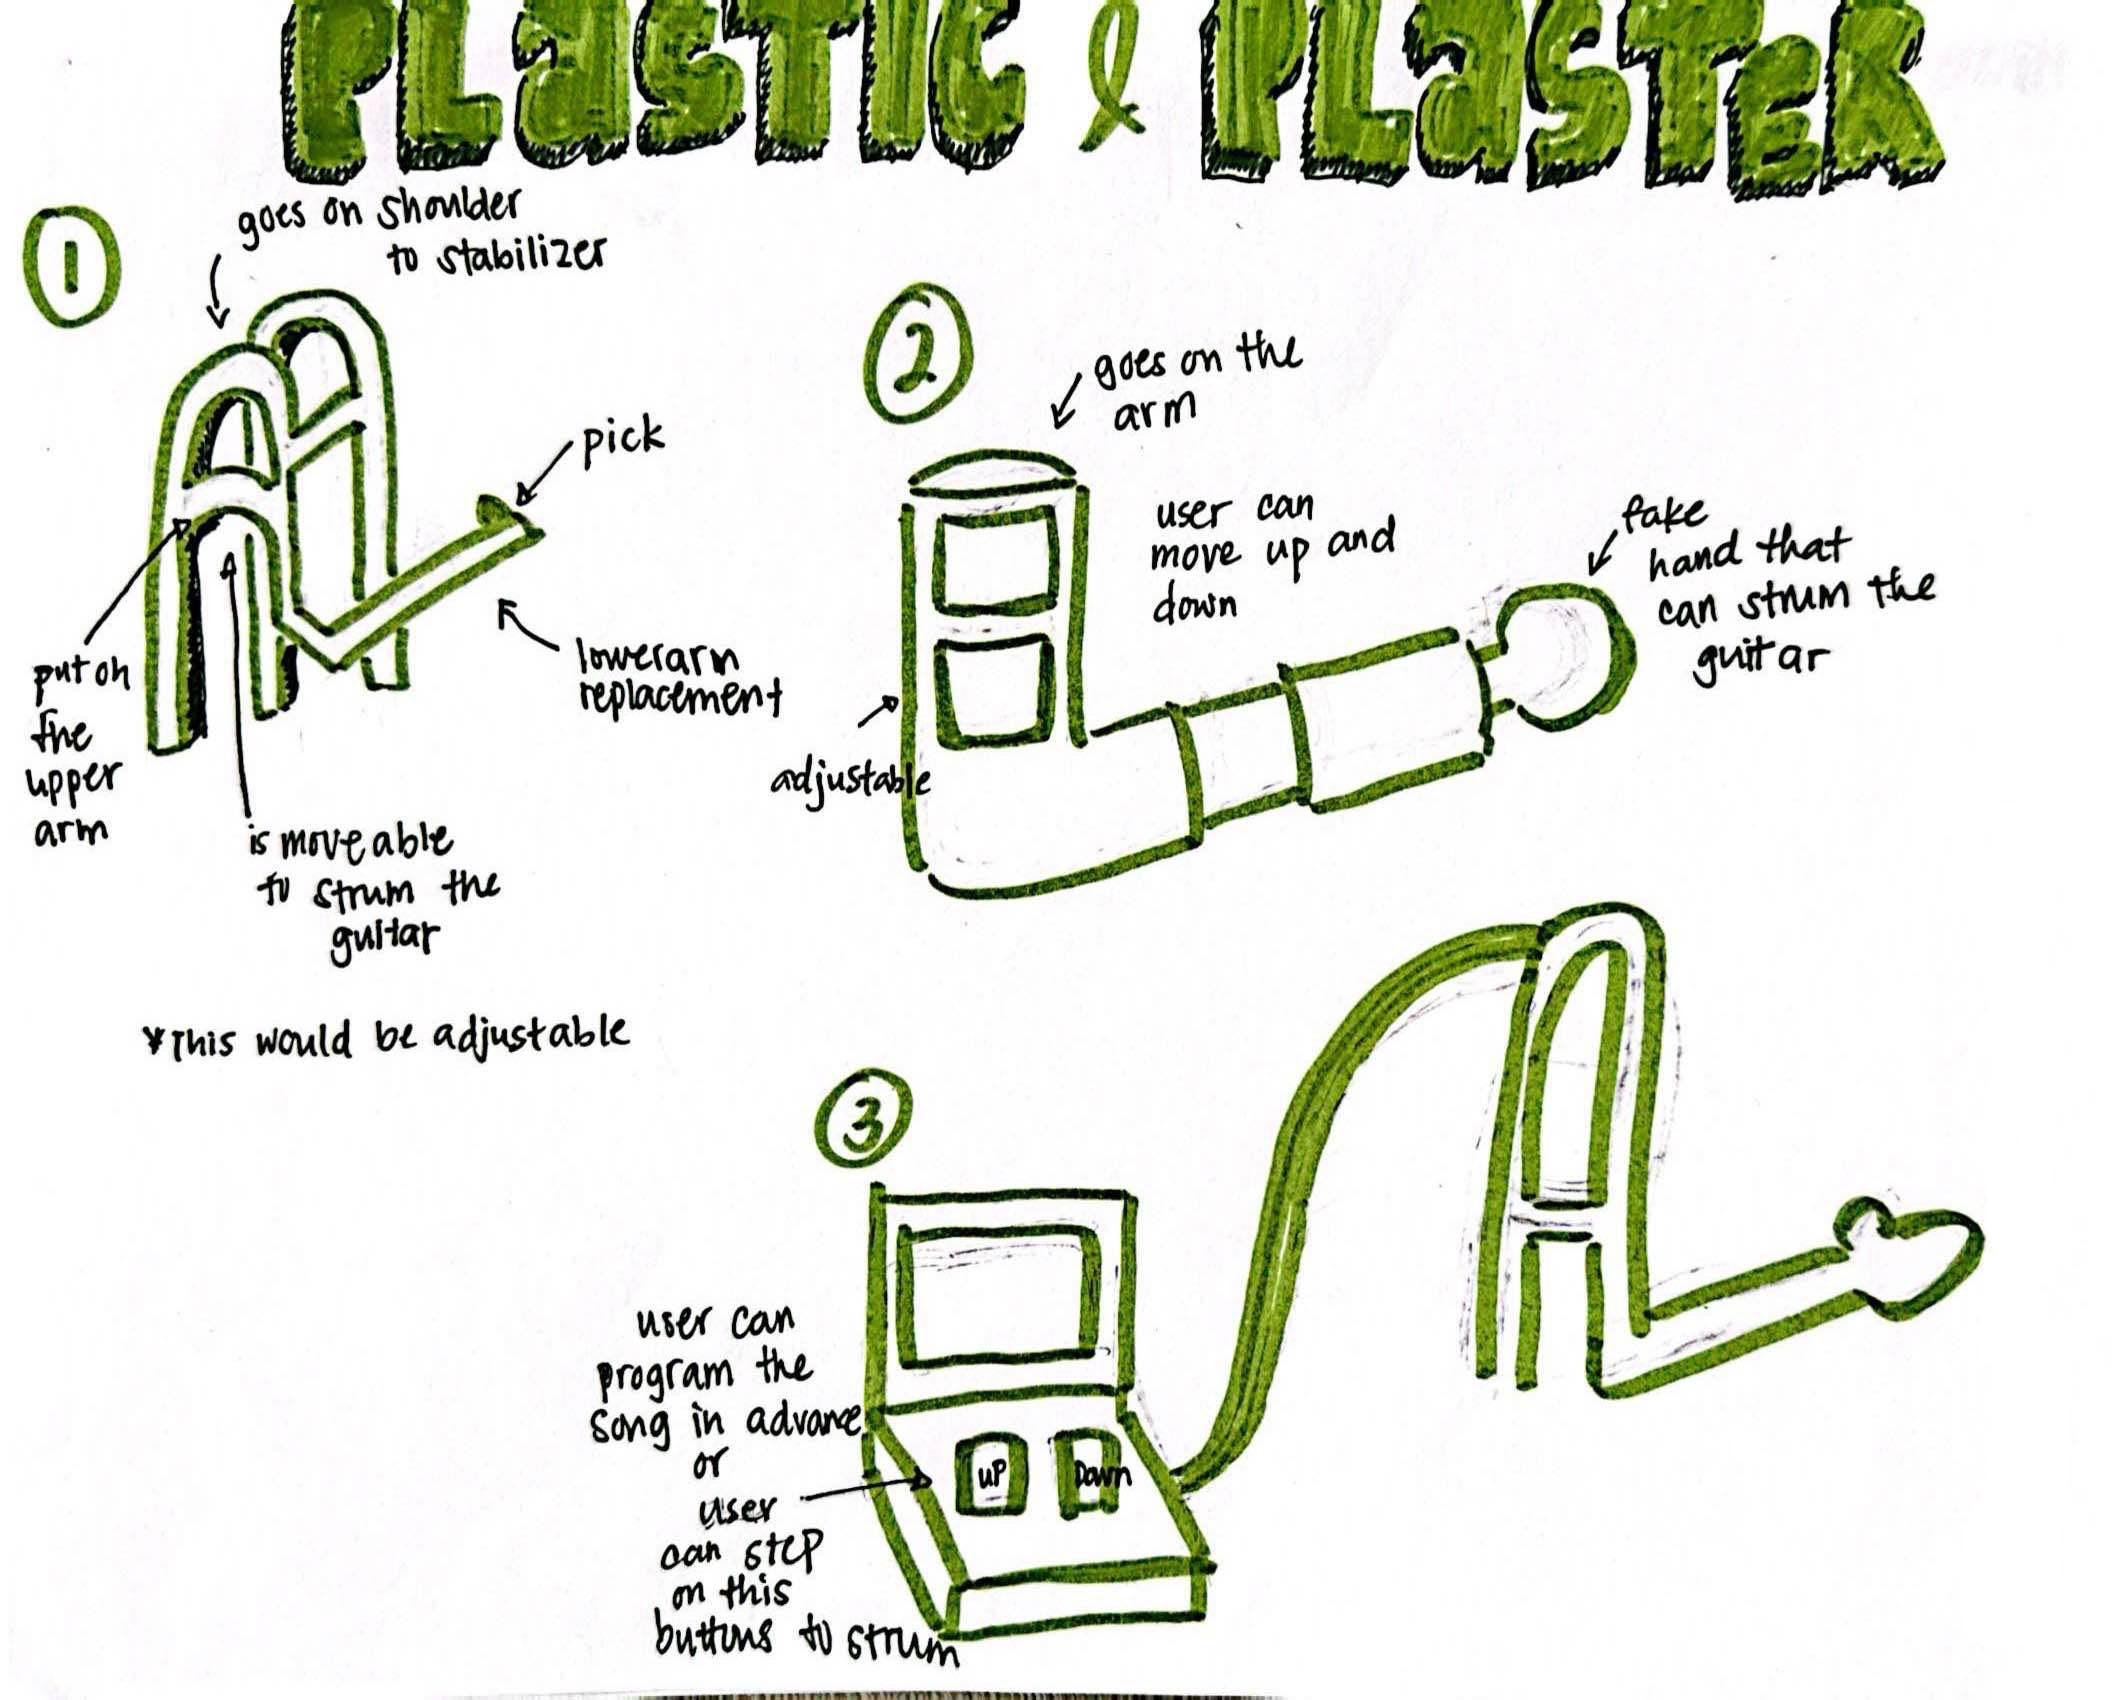 PLASTIC & PLASTER
1
goes on shoulder
to stabilizer
pick
put on
the
upper
arm
lowerarm
replacement
is moveable
to strum the
guitar
*This would be adjustable
2
goes on the
arm
user can
move up and
down
fake
hand that
can strum the
guitar
adjustable
3
user can
program the
song in advance
or
user
can step
on this
buttons to strum
UP
Down